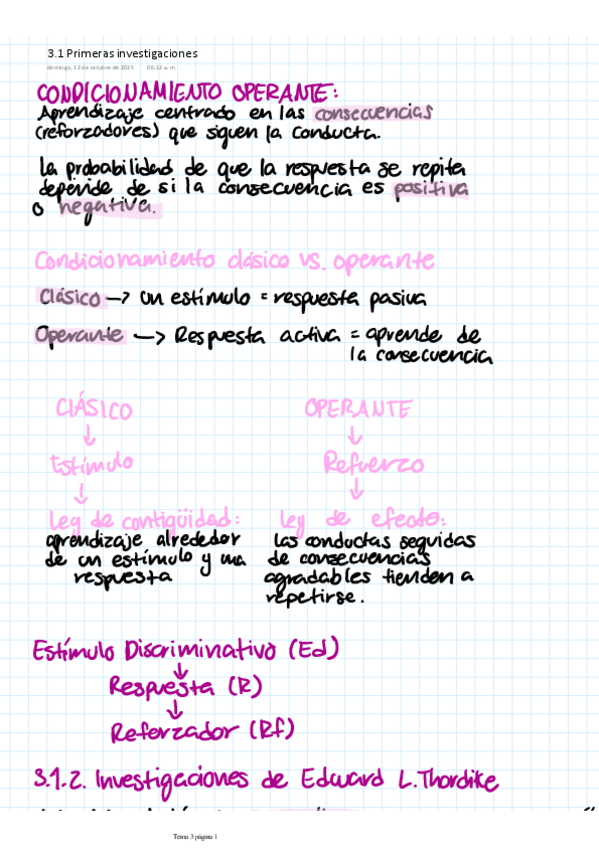 3.1 Primeras investigaciones
domingo, 12 de octubre de 2025 06:12 a. m.
CONDICIONAMIENTO OPERANTE:
Aprendizaje centrado en las consecuencias
(reforzadores) que siguen la conducta.
La probabilidad de que la respuesta se repita
depende de si la consecuencia es positiva
o negativa.
Condicionamiento clásico vs. operante
Clásico → un estímulo = respuesta pasiva
Operante → Respuesta activa = aprende de
la consecuencia
CLÁSICO OPERANTE
↓ ↓
Estímulo Refuerzo
↓ ↓
Ley de contigüidad: Ley de efecto:
aprendizaje alrededor las conductas seguidas
de un estímulo y una de consecuencias
respuesta agradables tienden a
repetirse.
Estímulo Discriminativo (Ed)
↓
Respuesta (R)
↓
Reforzador (Rf)
3.1.2. Investigaciones de Edward L. Thordike
Tema 3 página 1